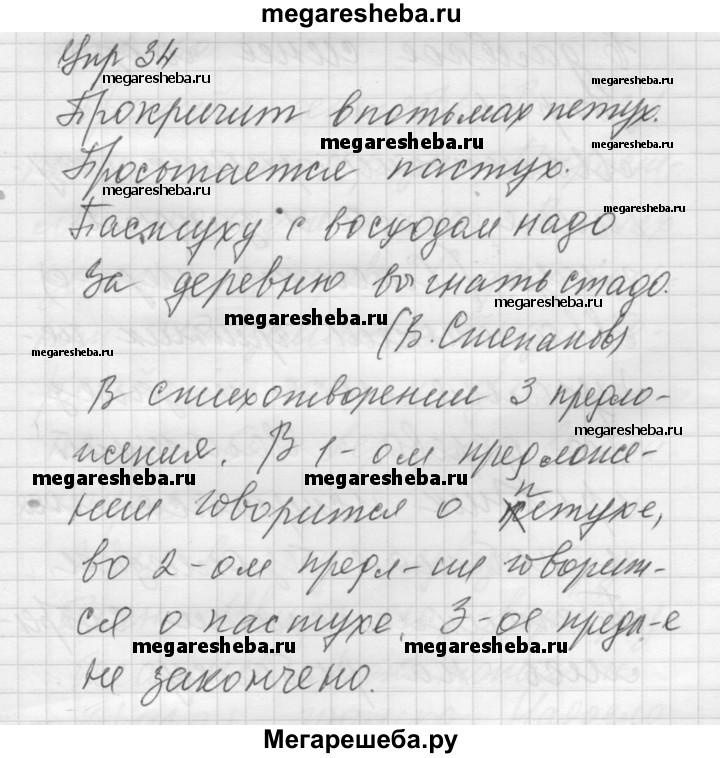 megaresheba.ru
Упр 34
megaresheba.ru
megaresheba.ru
Прокричит впотьмах петух.
megaresheba.ru
megaresheba.ru
Просыпается пастух.
megaresheba.ru
megaresheba.ru
Пастуху с восходом надо
За деревню выгнать стадо.
megaresheba.ru
megaresheba.ru
(В. Степанов)
megaresheba.ru
В стихотворении 3 предло-
megaresheba.ru
жения. В 1-ом предложе-
megaresheba.ru
megaresheba.ru
нии говорится о петухе,
во 2-ом предл-ии говорит-
ся о пастухе. 3-ое предл-е
megaresheba.ru
megaresheba.ru
не закончено.
Мегарешеба.ру